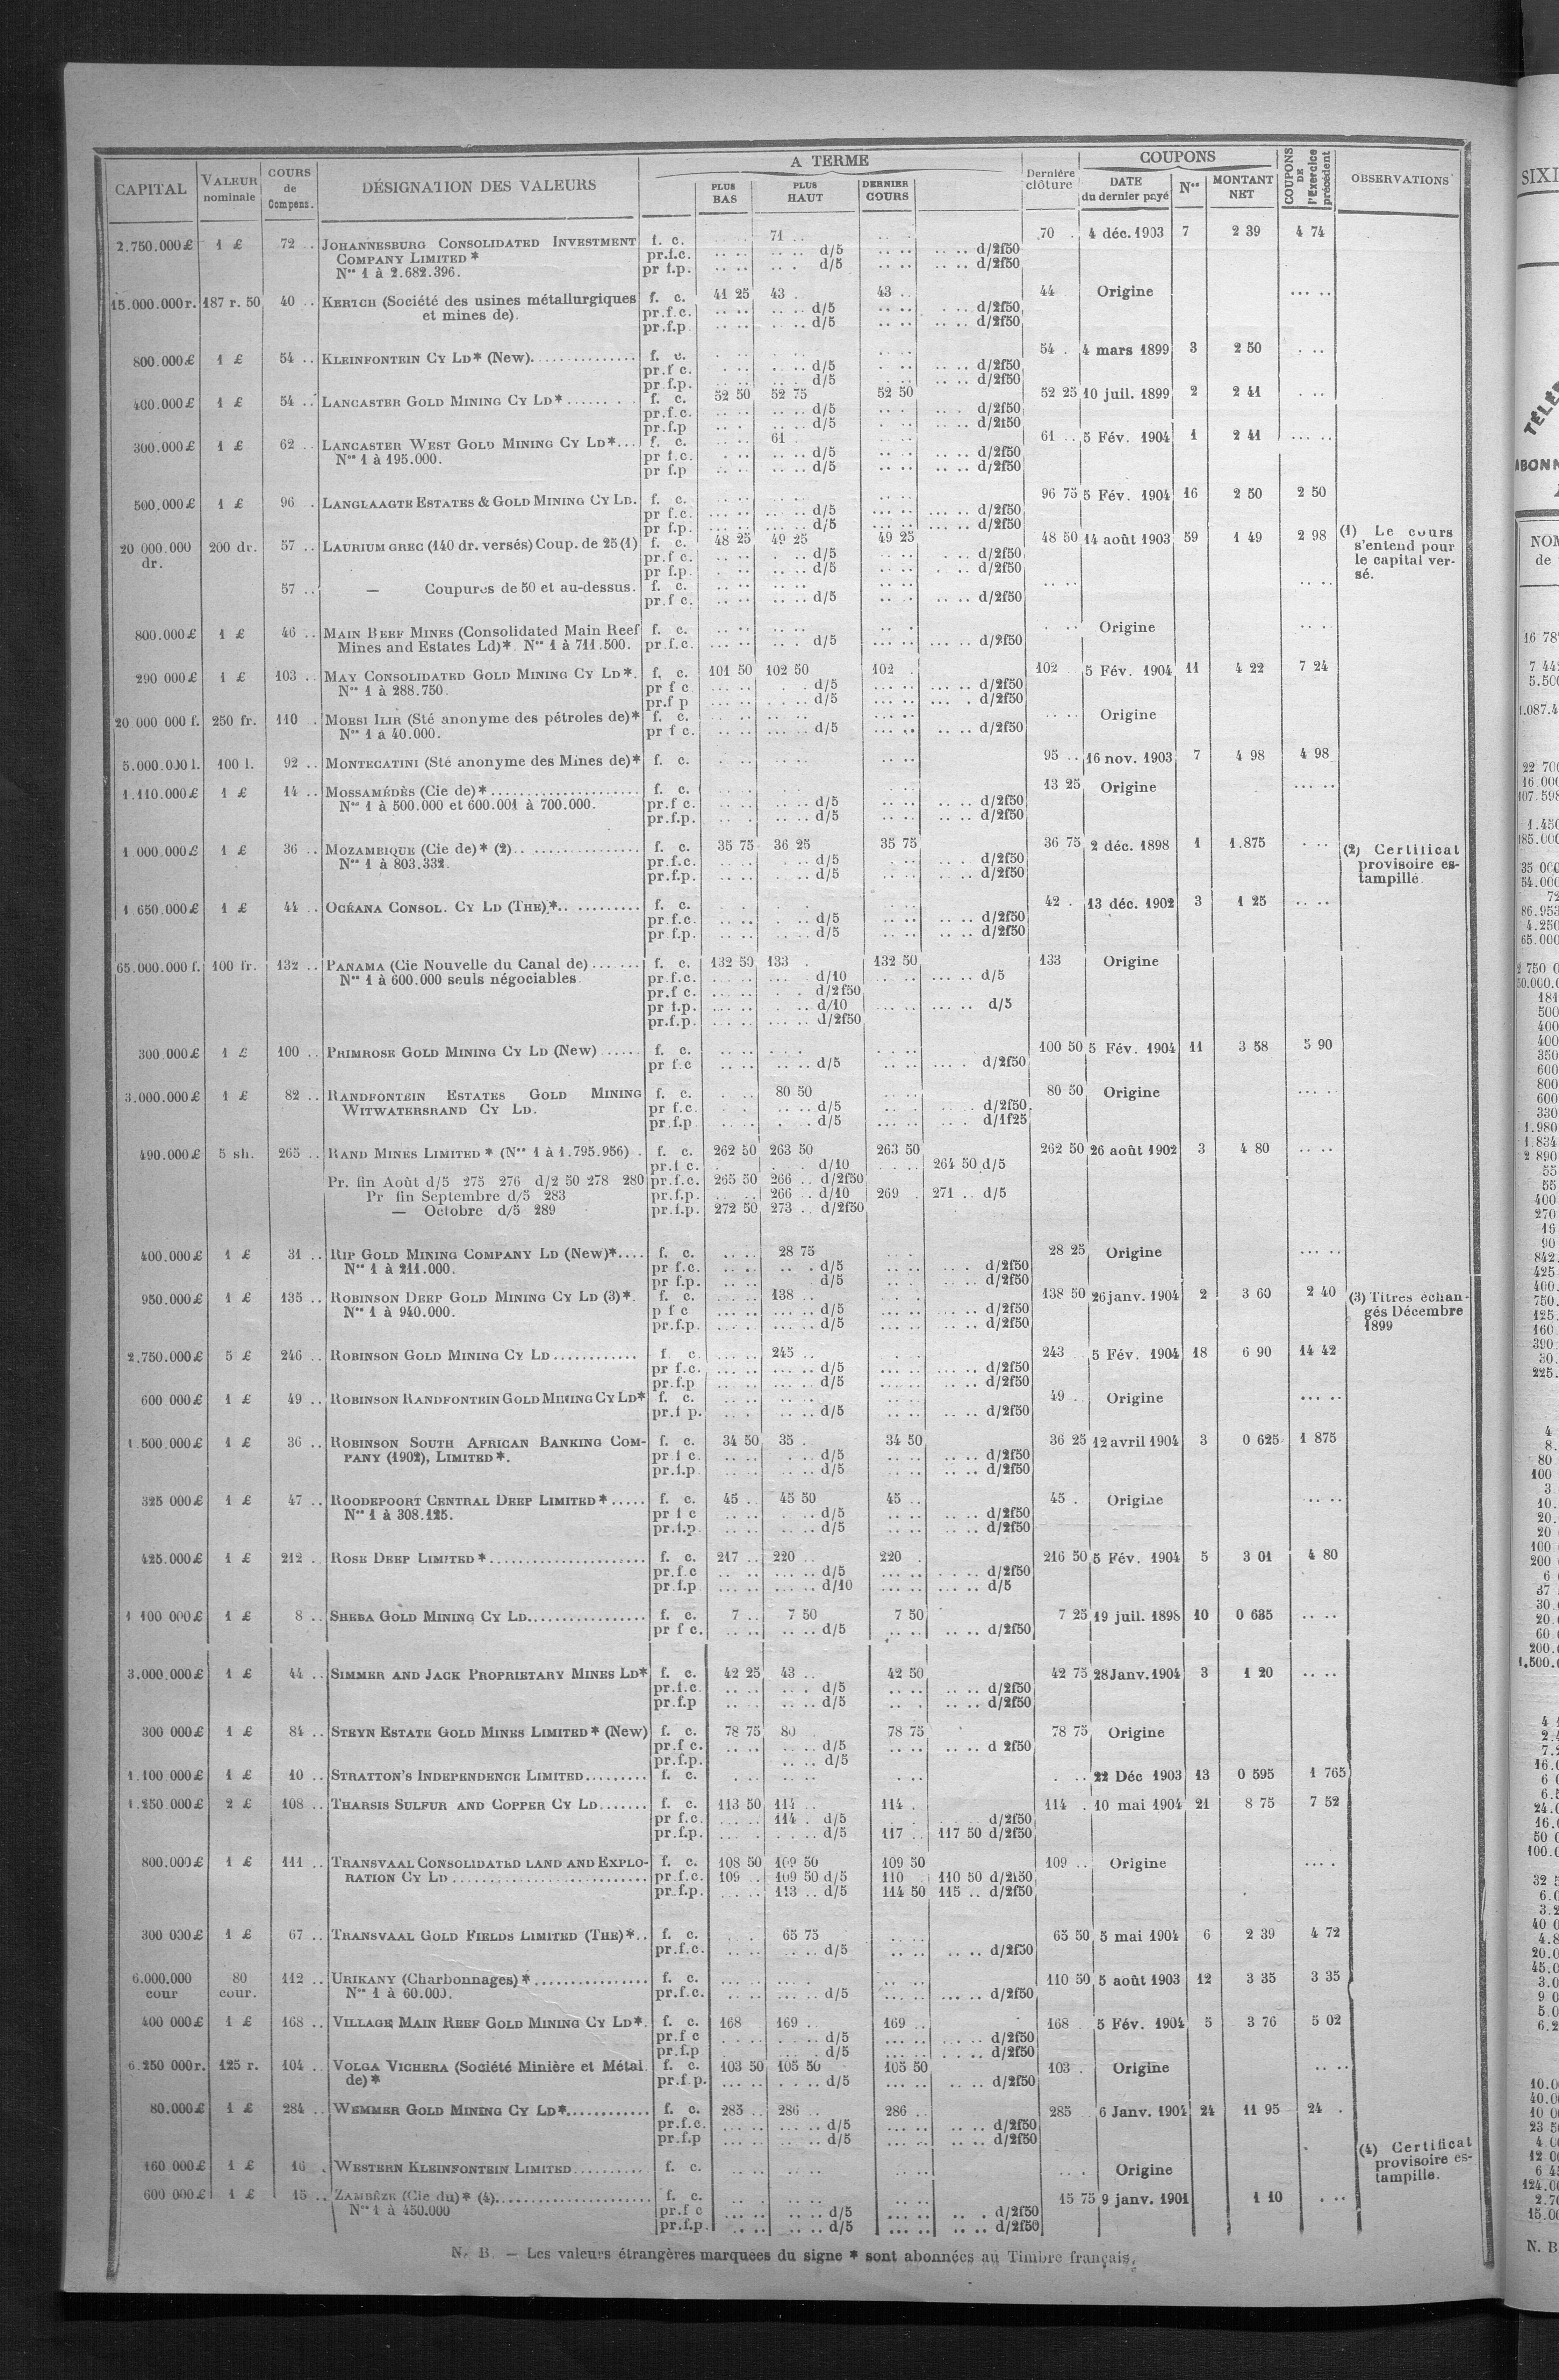 A TERME
COUPONS
CAPITAL VALEUR nominale COURS de Compens. DÉSIGNATION DES VALEURS PLUS BAS PLUS HAUT DERNIER COURS Dernière clôture DATE du dernier payé Nos MONTANT NET COUPONS DE l'Exercice précédent OBSERVATIONS
2.750.000£ 1 £ 72 .. JOHANNESBURG CONSOLIDATED INVESTMENT f. c. 71 .. 70 . 4 déc. 1903 7 2 39 4 74
COMPANY LIMITED * pr.f.c. d/5 d/2f50
Nos 1 à 2.682.396. pr f.p. d/5 d/2f50
15.000.000r. 187 r. 50 40 .. KERTCH (Société des usines métallurgiques f. c. 41 25 43 . 43 .. 44 Origine
et mines de). pr.f.c. d/5 d/2f50
pr.f.p d/5 d/2f50
800.000£ 1 £ 54 .. KLEINFONTEIN CY LD* (New) f. c. 54 . 4 mars 1899 3 2 50
pr.f c. d/5 d/2f50
pr f.p. d/5 d/2f50
400.000£ 1 £ 54 .. LANCASTER GOLD MINING CY LD* f. c. 52 50 52 75 52 50 52 25 10 juil. 1899 2 2 41
pr.f.c. d/5 d/2f50
pr.f.p d/5 d/2f50
300.000£ 1 £ 62 .. LANCASTER WEST GOLD MINING CY LD* f. c. 61 61 .. 5 Fév. 1904 1 2 41
Nos 1 à 195.000. pr f.c. d/5 d/2f50
pr f.p d/5 d/2f50
500.000£ 1 £ 96 . LANGLAAGTE ESTATES & GOLD MINING CY LD. f. c. 96 75 5 Fév. 1904 16 2 50 2 50
pr f.c. d/5 d/2f50
pr f.p. d/5 d/2f50
20 000.000 dr. 200 dr. 57 .. LAURIUM GREC (140 dr. versés) Coup. de 25 (1) f. c. 48 25 49 25 49 25 48 50 14 août 1903 59 1 49 2 98 (1) Le cours s'entend pour le capital versé.
pr.f c. d/5 d/2f50
pr f.p. d/5 d/2f50
57 .. — Coupures de 50 et au-dessus. f. c.
pr.f c. d/5 d/2f50
800.000£ 1 £ 46 .. MAIN REEF MINES (Consolidated Main Reef f. c. Origine
Mines and Estates Ld)*. Nos 1 à 711.500. pr.f.c. d/5 d/2f50
290 000£ 1 £ 103 .. MAY CONSOLIDATED GOLD MINING CY LD*. f. c. 101 50 102 50 102 . 102 . 5 Fév. 1904 11 4 22 7 24
Nos 1 à 288.750. pr f c d/5 d/2f50
pr.f p d/5 d/2f50
20 000 000 f. 250 fr. 110 . MORSI ILIR (Sté anonyme des pétroles de)* f. c. Origine
Nos 1 à 40.000. pr f c. d/5 d/2f50
5.000.000 l. 100 l. 92 .. MONTECATINI (Sté anonyme des Mines de)* f. c. 95 .. 16 nov. 1903 7 4 98 4 98
1.110.000£ 1 £ 14 .. MOSSAMÉDÈS (Cie de)* f. c. 13 25 Origine
Nos 1 à 500.000 et 600.001 à 700.000. pr.f c. d/5 d/2f50
pr.f.p. d/5 d/2f50
1.000.000£ 1 £ 36 .. MOZAMBIQUE (Cie de)* (2) f. c. 35 75 36 25 35 75 36 75 2 déc. 1898 1 1.875 (2) Certificat provisoire estampillé.
Nos 1 à 803.332. pr.f.c. d/5 d/2f50
pr.f.p. d/5 d/2f50
1 650.000£ 1 £ 44 .. OCÉANA CONSOL. CY LD (THE)* f. c. 42 . 13 déc. 1902 3 1 25
pr.f.c. d/5 d/2f50
pr f.p. d/5 d/2f50
65.000.000 f. 100 fr. 132 .. PANAMA (Cie Nouvelle du Canal de) f. c. 132 50 133 . 132 50 133 Origine
Nos 1 à 600.000 seuls négociables. pr.f.c. d/10 d/5
pr.f c. d/2f50
pr f.p. d/10 d/5
pr.f.p. d/2f50
300.000£ 1 £ 100 .. PRIMROSE GOLD MINING CY LD (New) f. c. 100 50 5 Fév. 1904 11 3 58 5 90
pr f.c d/5 d/2f50
3.000.000£ 1 £ 82 .. RANDFONTEIN ESTATES GOLD MINING f. c. 80 50 80 50 Origine
WITWATERSRAND CY LD. pr f.c. d/5 d/2f50
pr f.p d/5 d/1f25
490.000£ 5 sh. 265 .. RAND MINES LIMITED * (Nos 1 à 1.795.956) . f. c. 262 50 263 50 263 50 262 50 26 août 1902 3 4 80
pr.f c. d/10 264 50 d/5
Pr. fin Août d/5 275 276 d/2 50 278 280 pr.f.c. 265 50 266 .. d/2f50
Pr fin Septembre d/5 283 pr.f.p. 266 .. d/10 269 . 271 .. d/5
— Octobre d/5 289 pr.f.p. 272 50 273 .. d/2f50
400.000£ 1 £ 31 .. RIP GOLD MINING COMPANY LD (New)* f. c. 28 75 28 25 Origine
Nos 1 à 211.000. pr f.c. d/5 d/2f50
pr f.p. d/5 d/2f50
950.000£ 1 £ 135 .. ROBINSON DEEP GOLD MINING CY LD (3)*. f. c. 138 .. 138 50 26 janv. 1904 2 3 60 2 40 (3) Titres échangés Décembre 1899
Nos 1 à 940.000. p f c d/5 d/2f50
pr.f.p. d/5 d/2f50
2,750.000£ 5 £ 246 .. ROBINSON GOLD MINING CY LD f. c. 245 .. 243 5 Fév. 1904 18 6 90 14 42
pr f.c. d/5 d/2f50
pr.f.p d/5 d/2f50
600 000£ 1 £ 49 .. ROBINSON RANDFONTEIN GOLD MINING CY LD* f. c. 49 .. Origine
pr.f p. d/5 d/2f50
1 500.000£ 1 £ 36 .. ROBINSON SOUTH AFRICAN BANKING COM- f. c. 34 50 35 . 34 50 36 25 12 avril 1904 3 0 625 1 875
PANY (1902), LIMITED*. pr.f c. d/5 d/2f50
pr.f.p d/5 d/2f50
325 000£ 1 £ 47 .. ROODEPOORT CENTRAL DEEP LIMITED* f. c. 45 .. 45 50 45 .. 45 . Origine
Nos 1 à 308.125. pr f c d/5 d/2f50
pr.f.p. d/5 d/2f50
425.000£ 1 £ 212 .. ROSE DEEP LIMITED* f. c. 217 .. 220 .. 220 . 216 50 5 Fév. 1904 5 3 01 4 80
pr.f.c d/5 d/2f50
pr.f.p d/10 d/5
1 100 000£ 1 £ 8 .. SHEBA GOLD MINING CY LD f. c. 7 .. 7 50 7 50 7 25 19 juil. 1898 10 0 635
pr f c. d/5 d/2f50
3.000.000£ 1 £ 44 .. SIMMER AND JACK PROPRIETARY MINES LD* f. c. 42 25 43 .. 42 50 42 75 28 Janv. 1904 3 1 20
pr.f.c. d/5 d/2f50
pr.f.p d/5 d/2f50
300 000£ 1 £ 84 .. STEYN ESTATE GOLD MINES LIMITED* (New) f. c. 78 75 80 . 78 75 78 75 Origine
pr.f c. d/5 d 2f50
pr.f.p. d/5
1.100.000£ 1 £ 10 .. STRATTON'S INDEPENDENCE LIMITED f. c. 22 Déc 1903 13 0 595 1 765
1.250.000£ 2 £ 108 .. THARSIS SULFUR AND COPPER CY LD f. c. 113 50 114 .. 114 . 114 . 10 mai 1904 21 8 75 7 52
pr f.c. 114 . d/5 d/2f50
pr.f.p. d/5 117 .. 117 50 d/2f50
800.000£ 1 £ 111 .. TRANSVAAL CONSOLIDATED LAND AND EXPLO- f. c. 108 50 109 50 109 50 109 .. Origine
RATION CY LD pr.f.c. 109 .. 109 50 d/5 110 110 50 d/2f50
pr.f.p. 113 .. d/5 114 50 115 .. d/2f50
300 000£ 1 £ 67 .. TRANSVAAL GOLD FIELDS LIMITED (THE)* f. c. 65 75 65 50 5 mai 1904 6 2 39 4 72
pr.f.c. d/5 d/2f50
6.000.000 cour 80 cour. 112 .. URIKANY (Charbonnages)* f. c. 110 50 5 août 1903 12 3 35 3 35
Nos 1 à 60.000. pr.f.c. d/5 d/2f50
400 000£ 1 £ 168 .. VILLAGE MAIN REEF GOLD MINING CY LD*. f. c. 168 169 .. 169 .. 168 5 Fév. 1904 5 3 76 5 02
pr.f c d/5 d/2f50
pr.f.p d/5 d/2f50
6.250 000r. 125 r. 104 .. VOLGA VICHERA (Société Minière et Métal. f. c. 103 50 105 50 105 50 103 . Origine
de)* pr.f p. d/5 d/2f50
80.000£ 1 £ 284 .. WEMMER GOLD MINING CY LD* f. c. 285 .. 286 .. 286 .. 285 6 Janv. 1904 24 11 95 24 .
pr.f.c. d/5 d/2f50
pr.f.p d/5 d/2f50
160 000£ 1 £ 16 . WESTERN KLEINFONTEIN LIMITED f. c. Origine
600 000£ 1 £ 15 .. ZAMBÈZE (Cie du)* (4) f. c. 15 75 9 janv. 1901 1 10 (4) Certificat provisoire estampillé.
Nos 1 à 450.000 pr.f c d/5 d/2f50
pr.f.p. d/5 d/2f50
N. B. — Les valeurs étrangères marquees du signe * sont abonnées au Timbre français.